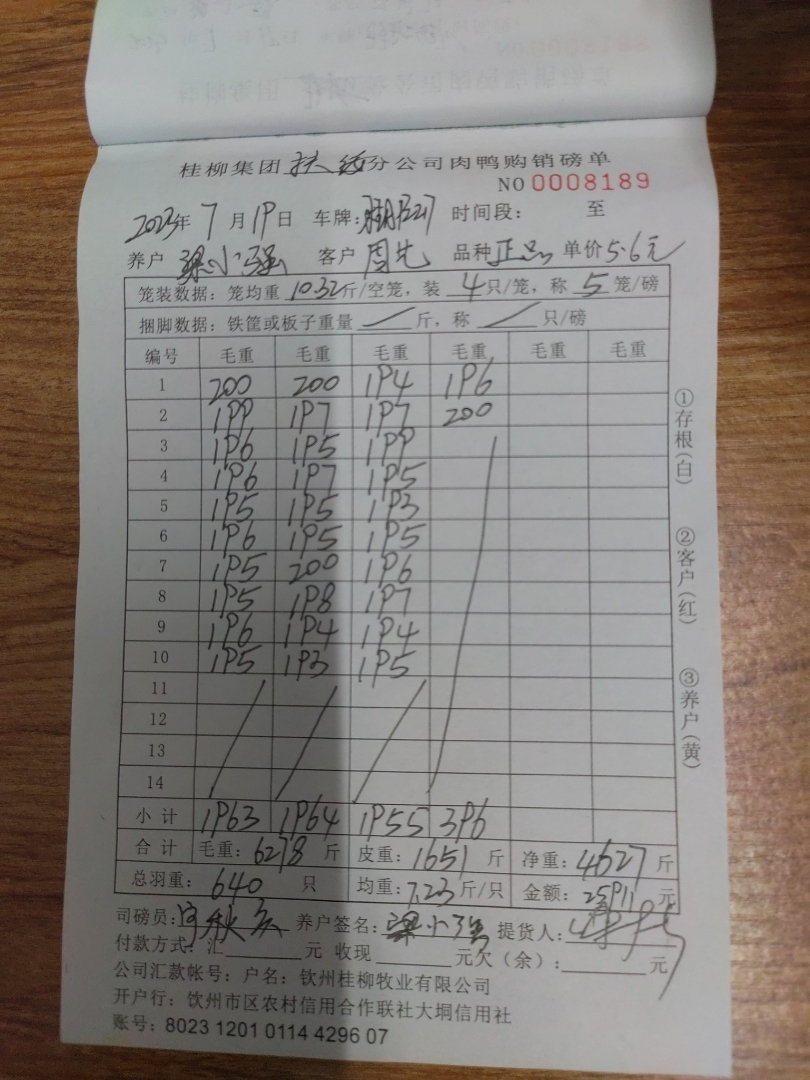 桂柳集团扶绥分公司肉鸭购销磅单
NO 0008189
2023年 7月19日 车牌: 时间段: 至
养户 梁小强 客户 周先 品种 正品 单价 5.6元
笼装数据: 笼均重 10.32斤/空笼, 装 4只/笼, 称 5笼/磅
捆脚数据: 铁筐或板子重量 斤, 称 只/磅
编号 毛重 毛重 毛重 毛重 毛重 毛重
1 200 200 194 196
2 199 197 197 200
3 196 195 199
4 196 197 195
5 195 195 193
6 196 195 195
7 195 200 196
8 195 198 197
9 196 194 194
10 195 193 195
11
12
13
14
小计 1963 1964 1955 396
合计 毛重: 6278斤 皮重: 1651斤 净重: 4627斤
总羽重: 640 只 均重: 7.23斤/只 金额: 25911元
司磅员: 养户签名: 梁小强 提货人:
付款方式: 汇 元 收现 元欠(余): 元
公司汇款帐号: 户名: 钦州桂柳牧业有限公司
开户行: 钦州市区农村信用合作联社大垌信用社
账号: 8023 1201 0114 4296 07
①存根(白)
②客户(红)
③养户(黄)